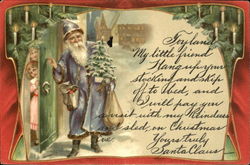 Toyland.
My little friend
Hang up your
stocking and skip
off to bed, and
I will pay you
a visit with my Reindeers
and sled, on Christmas
Eve
Yours truly
Santa Claus